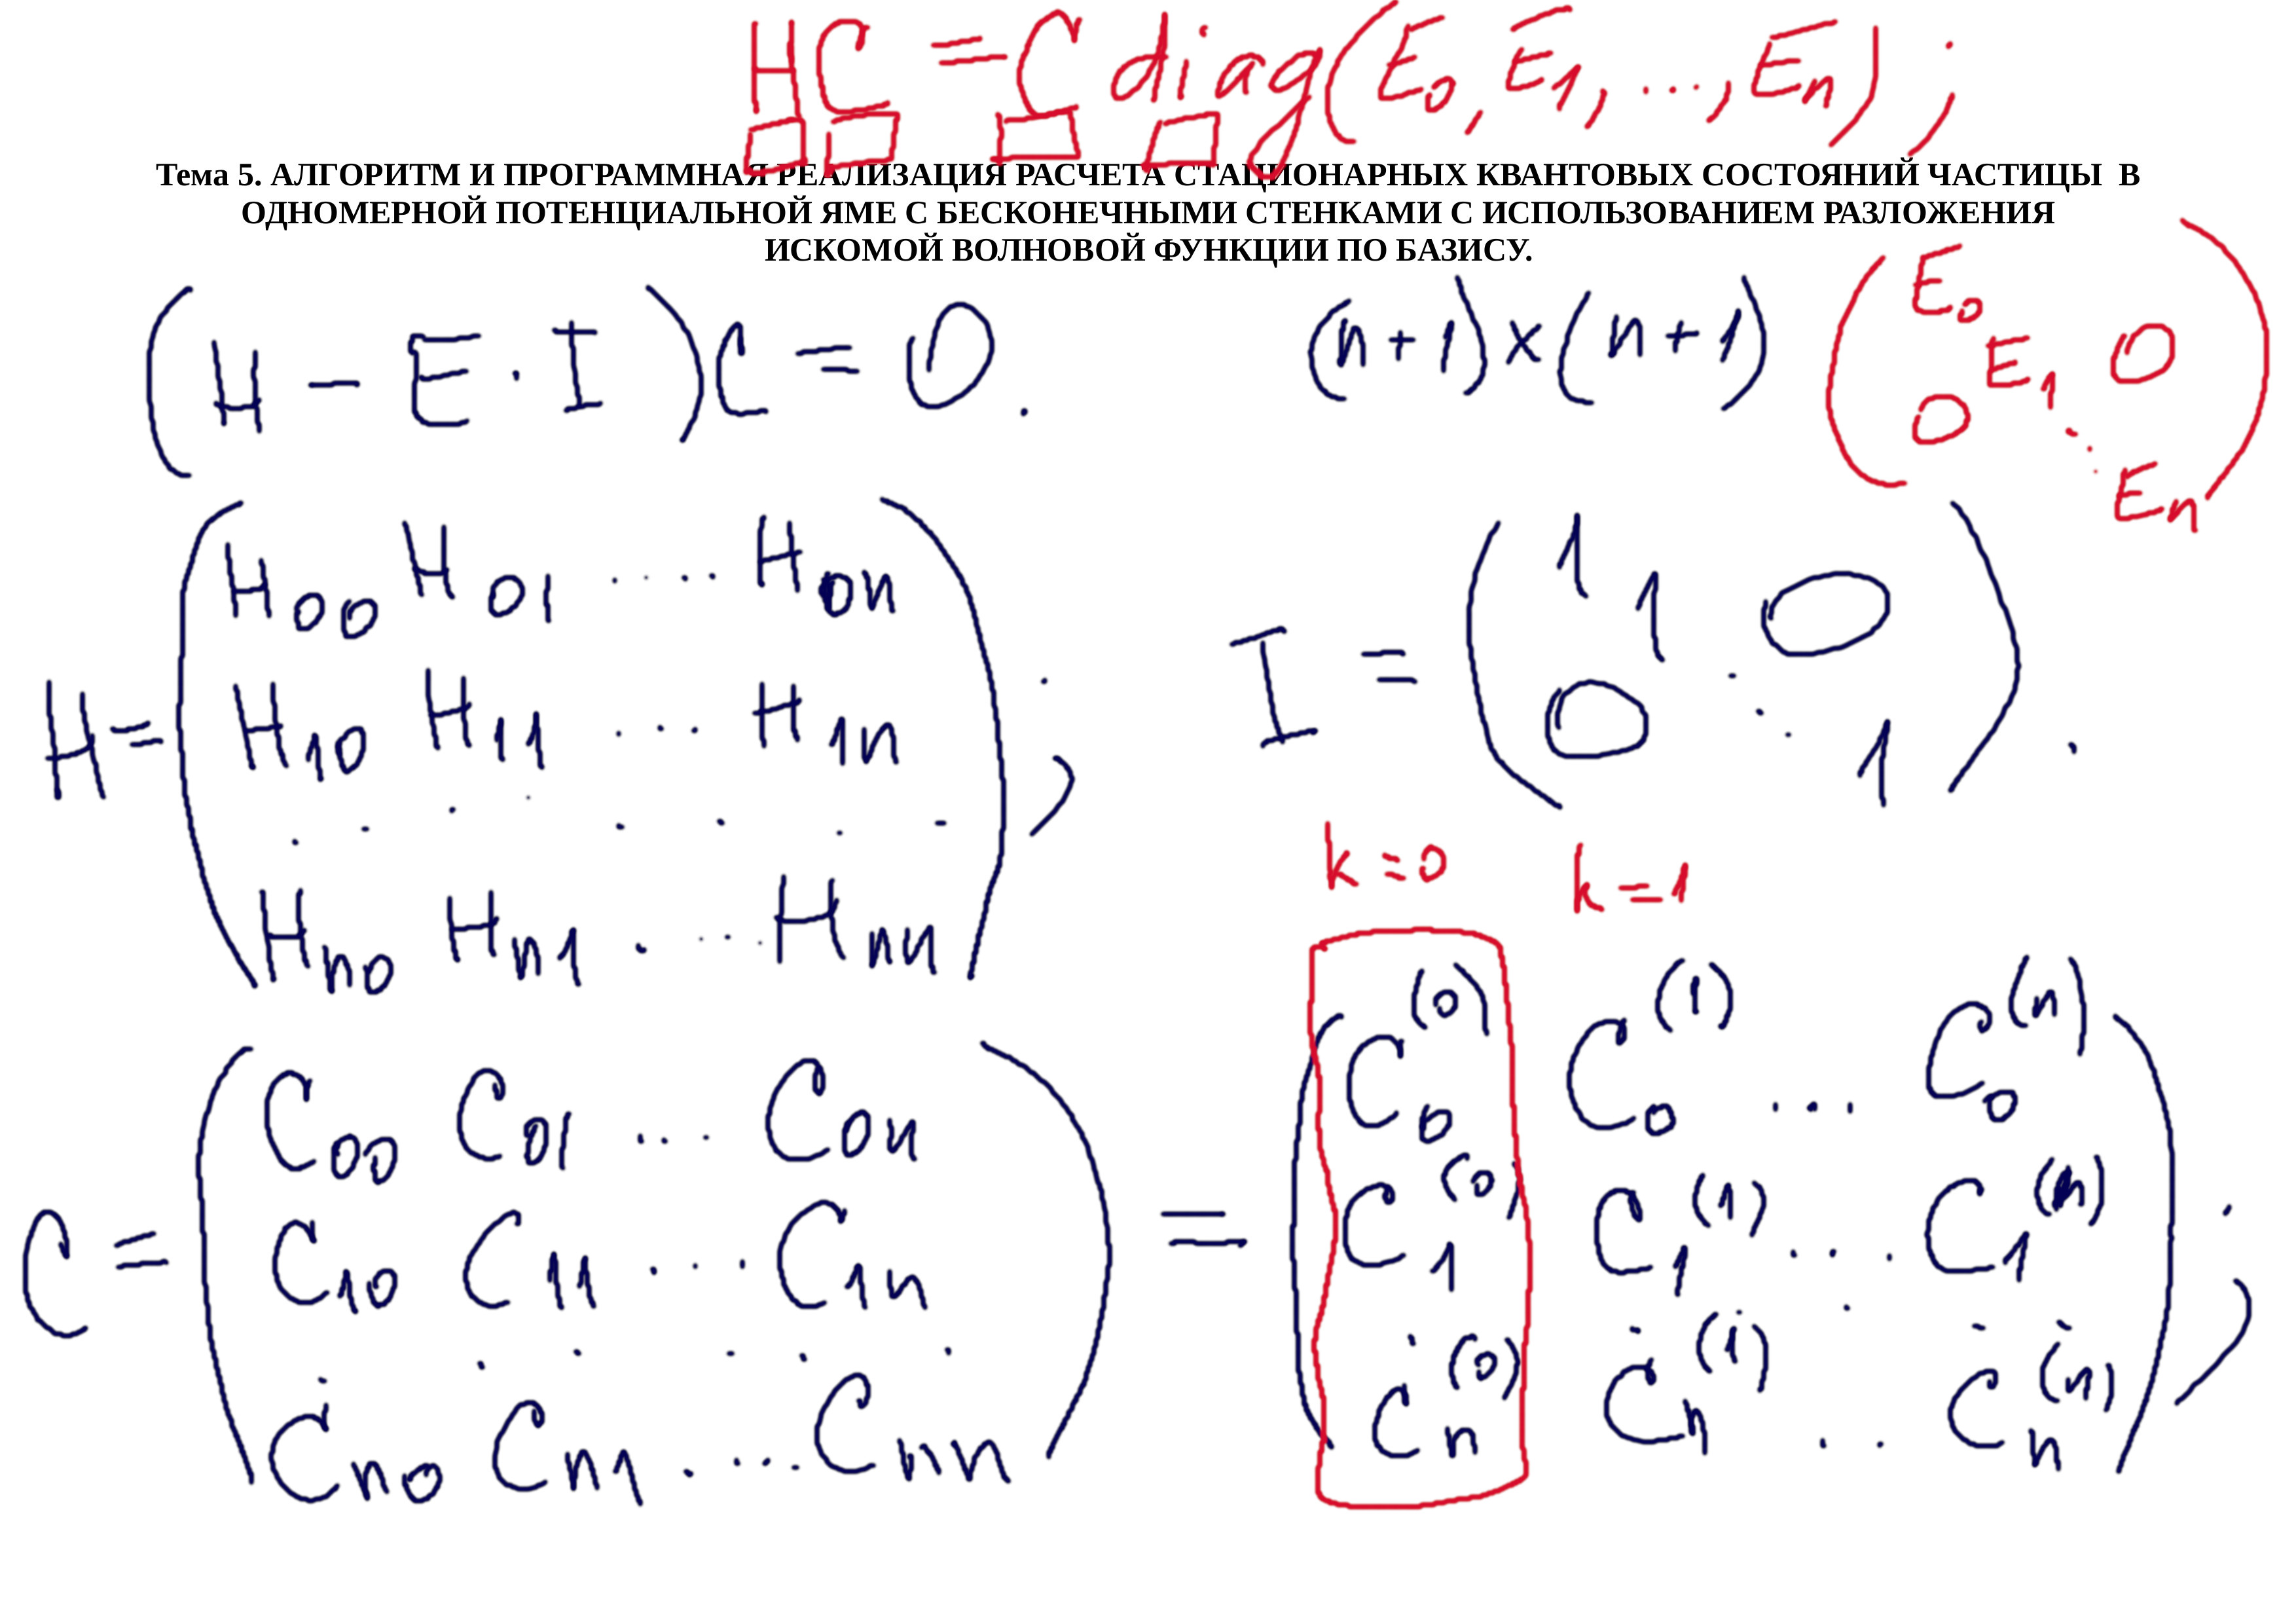 HC = C diag(E₀, E₁, ..., Eₙ) ;
Тема 5. АЛГОРИТМ И ПРОГРАММНАЯ РЕАЛИЗАЦИЯ РАСЧЕТА СТАЦИОНАРНЫХ КВАНТОВЫХ СОСТОЯНИЙ ЧАСТИЦЫ В
ОДНОМЕРНОЙ ПОТЕНЦИАЛЬНОЙ ЯМЕ С БЕСКОНЕЧНЫМИ СТЕНКАМИ С ИСПОЛЬЗОВАНИЕМ РАЗЛОЖЕНИЯ
ИСКОМОЙ ВОЛНОВОЙ ФУНКЦИИ ПО БАЗИСУ.
(H − E · I) C = 0.
(n+1)×(n+1)
E₀
E₁ 0
0 ⋱
Eₙ
H₀₀ H₀₁ .... H₀ₙ
H = H₁₀ H₁₁ ... H₁ₙ ;
. . . . . . . .
Hₙ₀ Hₙ₁ .... Hₙₙ
1
I = 1 0
0 ⋱ 1 .
k=0 k=1
C₀₀ C₀₁ ... C₀ₙ
C = C₁₀ C₁₁ ... C₁ₙ
. . . . . . .
Cₙ₀ Cₙ₁ .... Cₙₙ
C₀⁽⁰⁾ C₀⁽¹⁾ ... C₀⁽ⁿ⁾
= C₁⁽⁰⁾ C₁⁽¹⁾ ... C₁⁽ⁿ⁾ ;
. . . . .
Cₙ⁽⁰⁾ Cₙ⁽¹⁾ .. Cₙ⁽ⁿ⁾